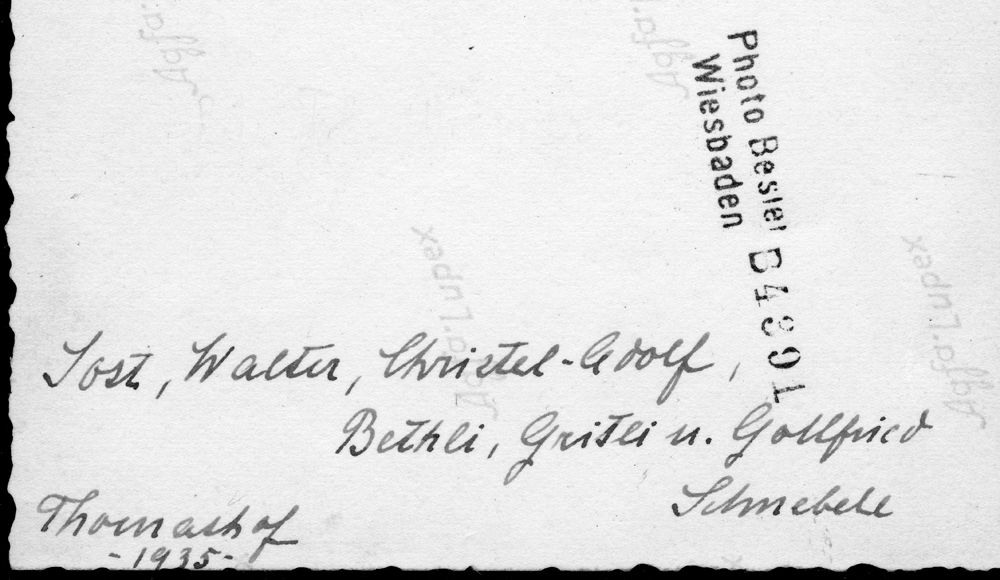 Photo Besier B4891
Wiesbaden
Agfa-Lupex
Agfa-Lupex
Jost, Walter, Christel-Adolf,
Bethli, Gritli u. Gottfried
Schnebele
Thomashof
-1935-